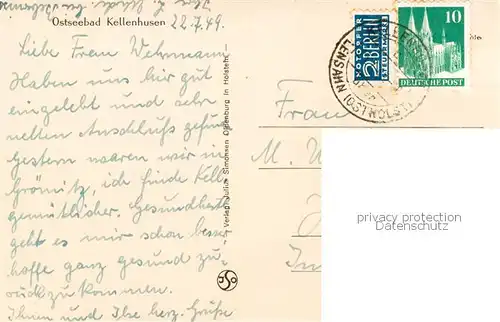 Ostseebad Kellenhusen
22.7.49.
Liebe Frau Wehrmann
Haben uns hier gut
eingelebt und sehr
netten Anschluß gefun
Gestern waren wir in
Grömitz, ich finde Kell.
gemütlicher. Gesundheitl.
geht es mir schon besser
hoffe ganz gesund zu-
rückzukommen.
Ihnen und Ilse herz. Grüße
Verlag Julius Simonsen Oldenburg in Holstein
NOTOPFER
2 BERLIN
STEUERMARKE
10
DEUTSCHE POST
LENSAHN (OSTHOLST)
Frau
M. W
privacy protection
Datenschutz